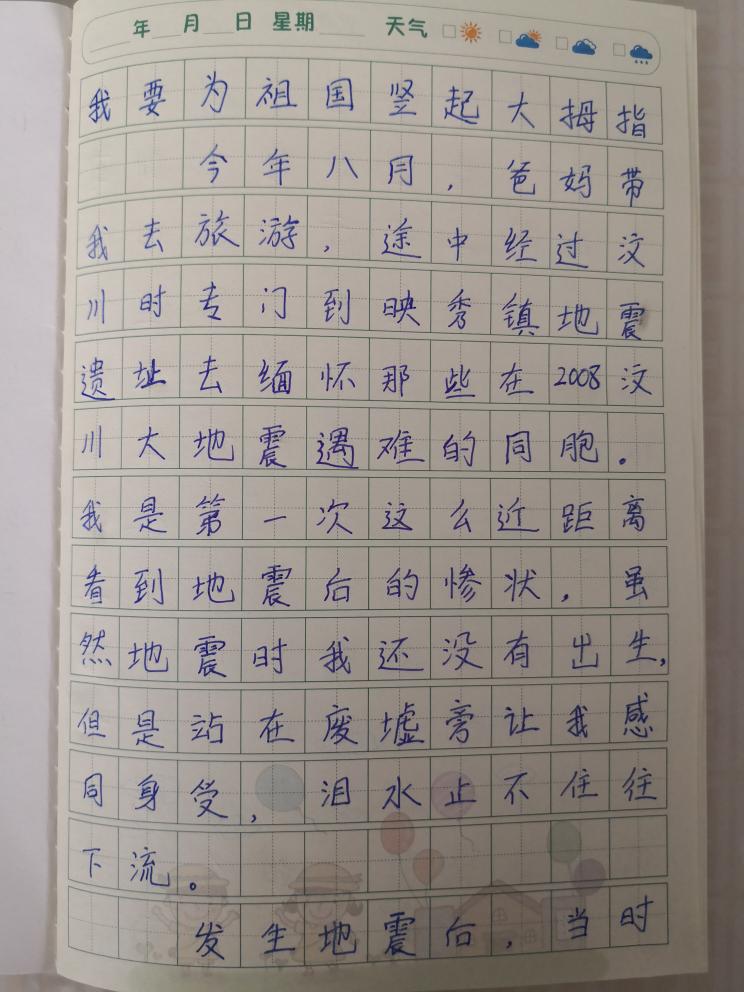 年 月 日 星期 天气
我要为祖国竖起大拇指
今年八月，爸妈带
我去旅游，途中经过汶
川时专门到映秀镇地震
遗址去缅怀那些在2008汶
川大地震遇难的同胞。
我是第一次这么近距离
看到地震后的惨状，虽
然地震时我还没有出生，
但是站在废墟旁让我感
同身受，泪水止不住往
下流。
发生地震后，当时